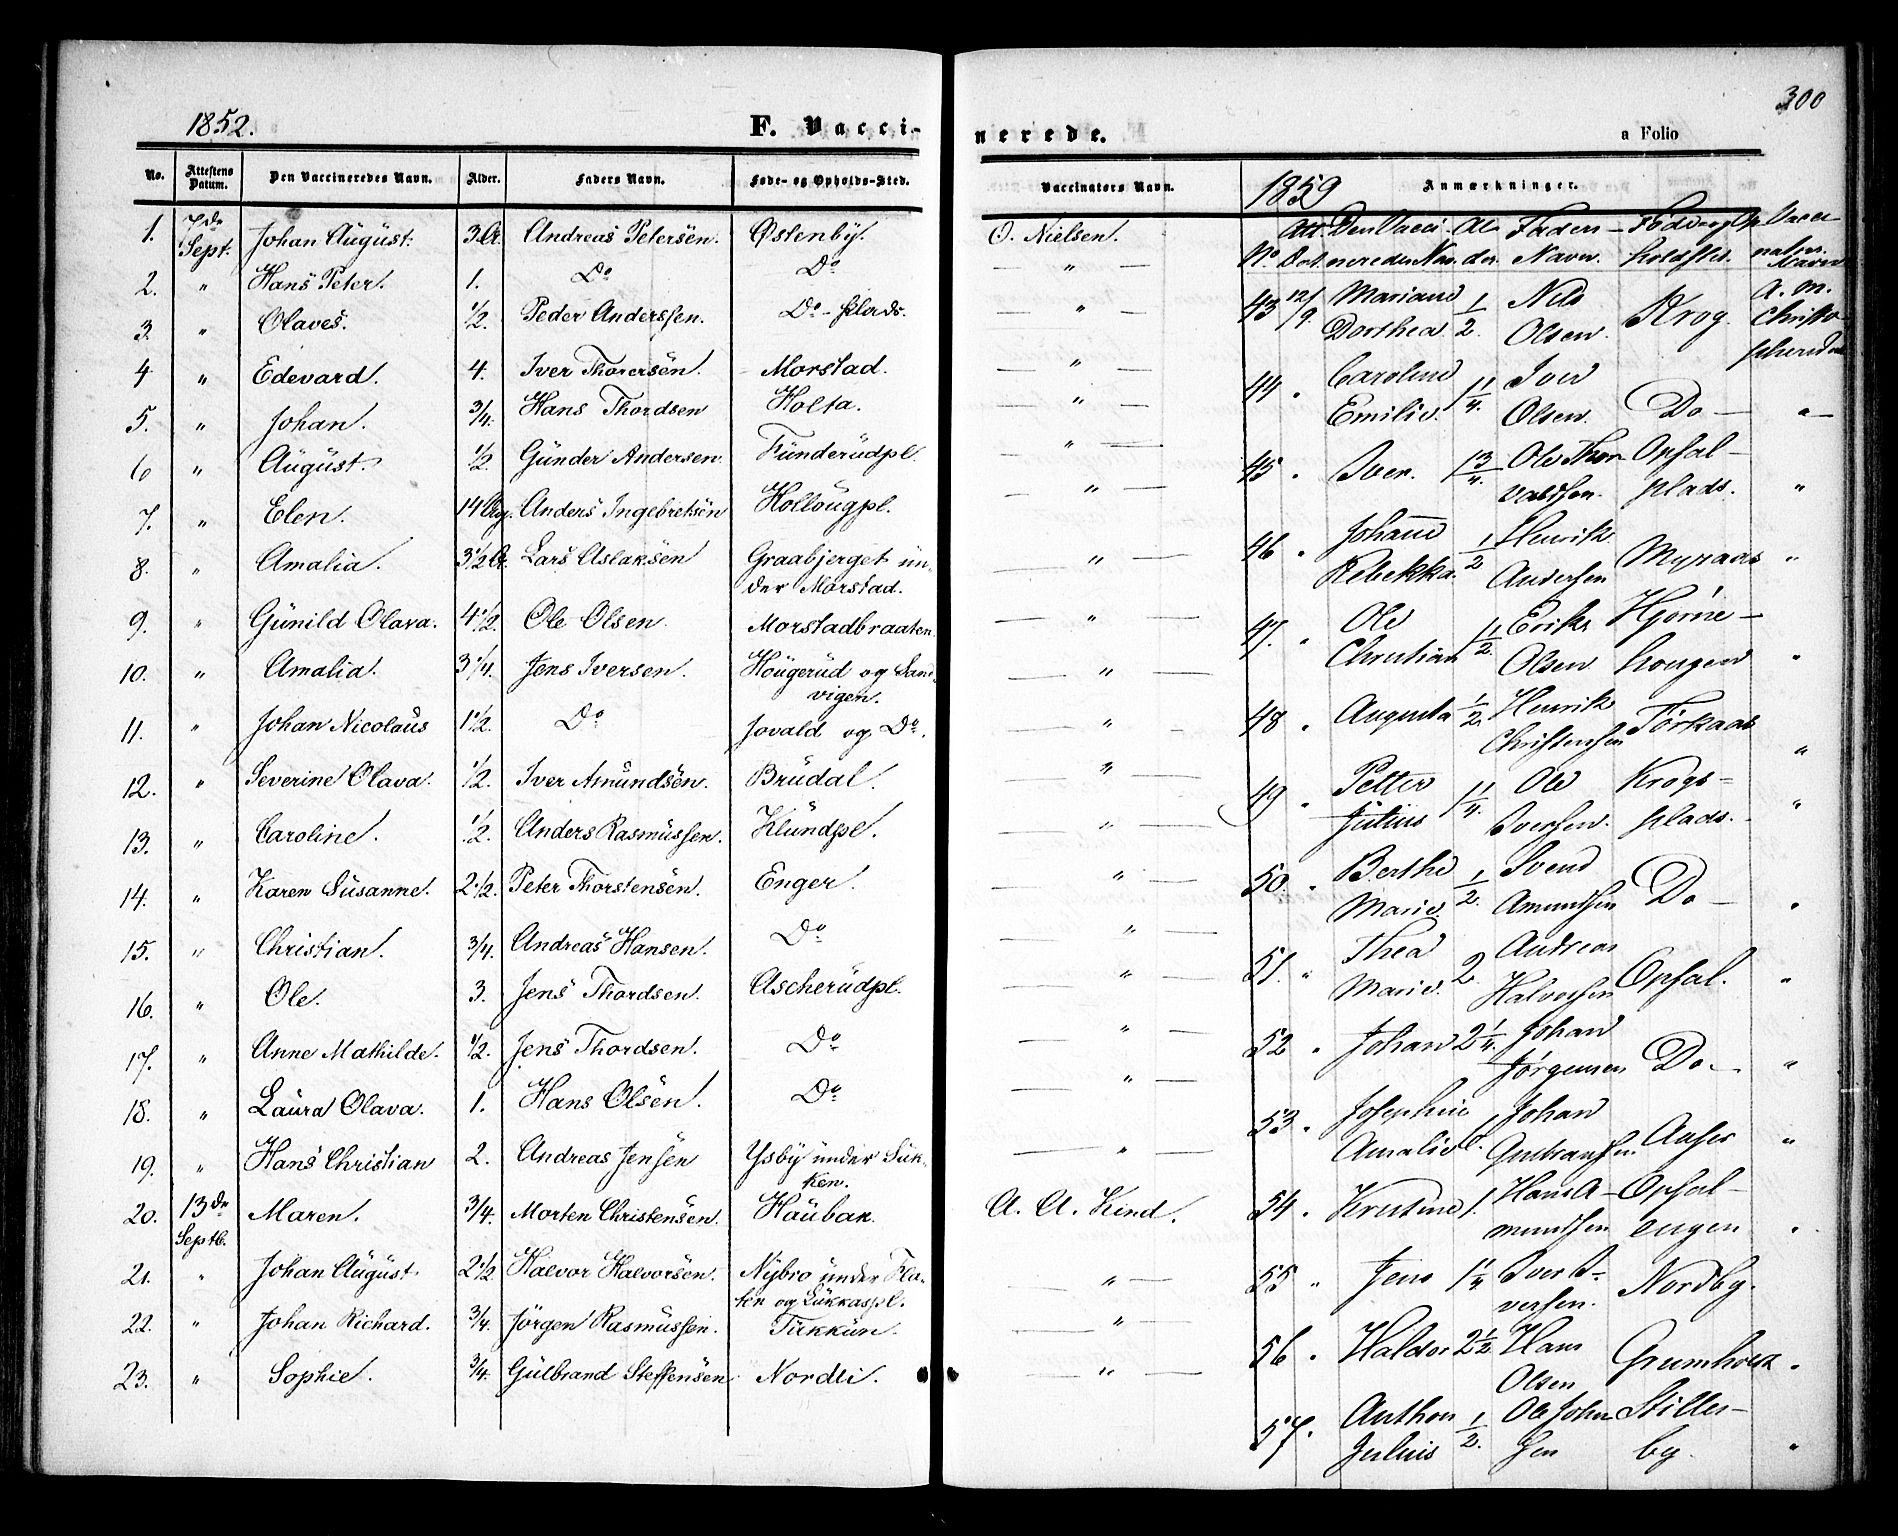 1852.
F. Vacci-
No. Attestens Datum. Den Vaccineredes Navn. Alder. Faders Navn. Føde- og Opholds-Sted.
1. 7de Sept. Johan August. 3 A. Andreas Petersen. Østenby.
2. " Hans Peter. 1. Do Do
3 " Olaves. 1/2. Peder Anderssen. Do - Plads.
4 " Edevard. 4. Iver Thorersen. Morstad.
5. " Johan. 3/4. Hans Thordsen Holta.
6 " August. 1/2 Günder Andersen. Fünderüdpl.
7. " Elen. 14 Ingebretsen Anders Hollougpl.
8. " Amalia. 3 1/2 A. Lars Aslaksen Graabjerget un-
der Morstad.
9. " Günild Olava. 4 1/2. Ole Olsen Morstadbraaten
10. " Amalia. 3 1/4. Jens Iversen. Hougerüd og Sand-
vigen.
11. " Johan Nicolaus 1 1/2. Do Jovald og Do.
12. " Severine Olava. 1/2. Iver Amundsen. Brüdal.
13. " Caroline. 1/2. Anders Rasmussen. Klündpl.
14. " Karen Susanne. 2 1/2. Peter Thorstensen. Enger.
15. " Christian. 3/4. Andreas Hansen. Do
16. " Ole. 3. Jens Thordsen. Ascherüdpl.
17. " Anne Mathilde. 1/2. Jens Thordsen. Do
18. " Laura Olava. 1. Hans Olsen. Do
19. " Hans Christian 2. Andreas Jensen Ysby under Suk-
ken.
20. 13de Septb. Maren. 3/4. Morten Christensen. Haübak.
21. " Johan August 2 1/2 Halvor Halvorsen. Nybro under Fla-
ten og Lükkaspl.
22. " Johan Richard. 3/4. Jörgen Rasmussen. Tukkün.
23. " Sophie. 3/4. Gülbrand Steffensen Nordli.
300
nerede.
a Folio
Vaccinators Navn. 1859 Anmærkninger.
O. Nielsen.
A. A. Kind.
No Att. Dat. Den Vacci-neredes Nav. Al-der. Faders Navn. Føde og Op-holdsted. Vacci-nators Navn
43 12/9 Mariane Dorthea 1/2. Nils Olsen. Krog. A. M. Christo-phersen
44 " Caroline Emilie. 1 1/4. Iver Olsen. Do - " -
45 " Iver. 1 3/4. Ole Thor-valdsen. Opsal-plads. "
46 " Johanne Rebekka. 1/2 Henrik Andersen Myraas "
47. " Ole Christian 1 1/2. Erik Olsen Hjørne-hougen "
48 " Augusta 1/2. Henrik Christensen Torkaas "
49 " Petter Julius 1 1/4. Ole Iversen. Krogs-plads. "
50. " Berthe Marie. 1/2. Svend Amundsen Do - "
51. " Thea Marie. 2 Andreas Halvorsen Opsal. "
52 " Johan 2 1/4. Johan Jørgensen Do - "
53. " Josephine Amalie 1. Johan Gulbransen. "
54 " Kristine 1. Hans A-mundsen Opsal-engen "
55 " Jens 1 1/4 Iver I-versen. Nordby.
56 " Haldor 2 1/2 Hans Olsen "
57. " Anthon Julius 1/2. Ole John-sen Stiller-by. "